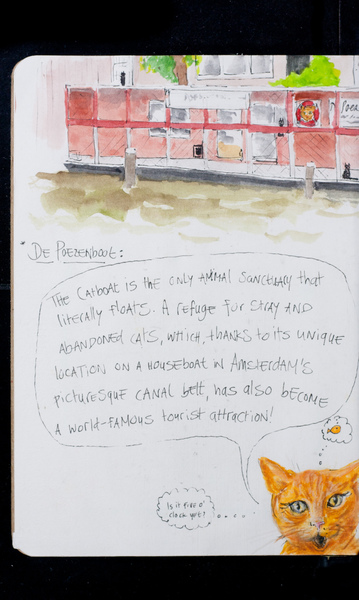 * De Poezenboot:
The Catboat is the only animal sanctuary that
literally floats. A refuge for stray and
abandoned cats, which, thanks to its unique
location on a houseboat in Amsterdam's
picturesque canal belt, has also become
a world-famous tourist attraction!
Is it five o'
clock yet?